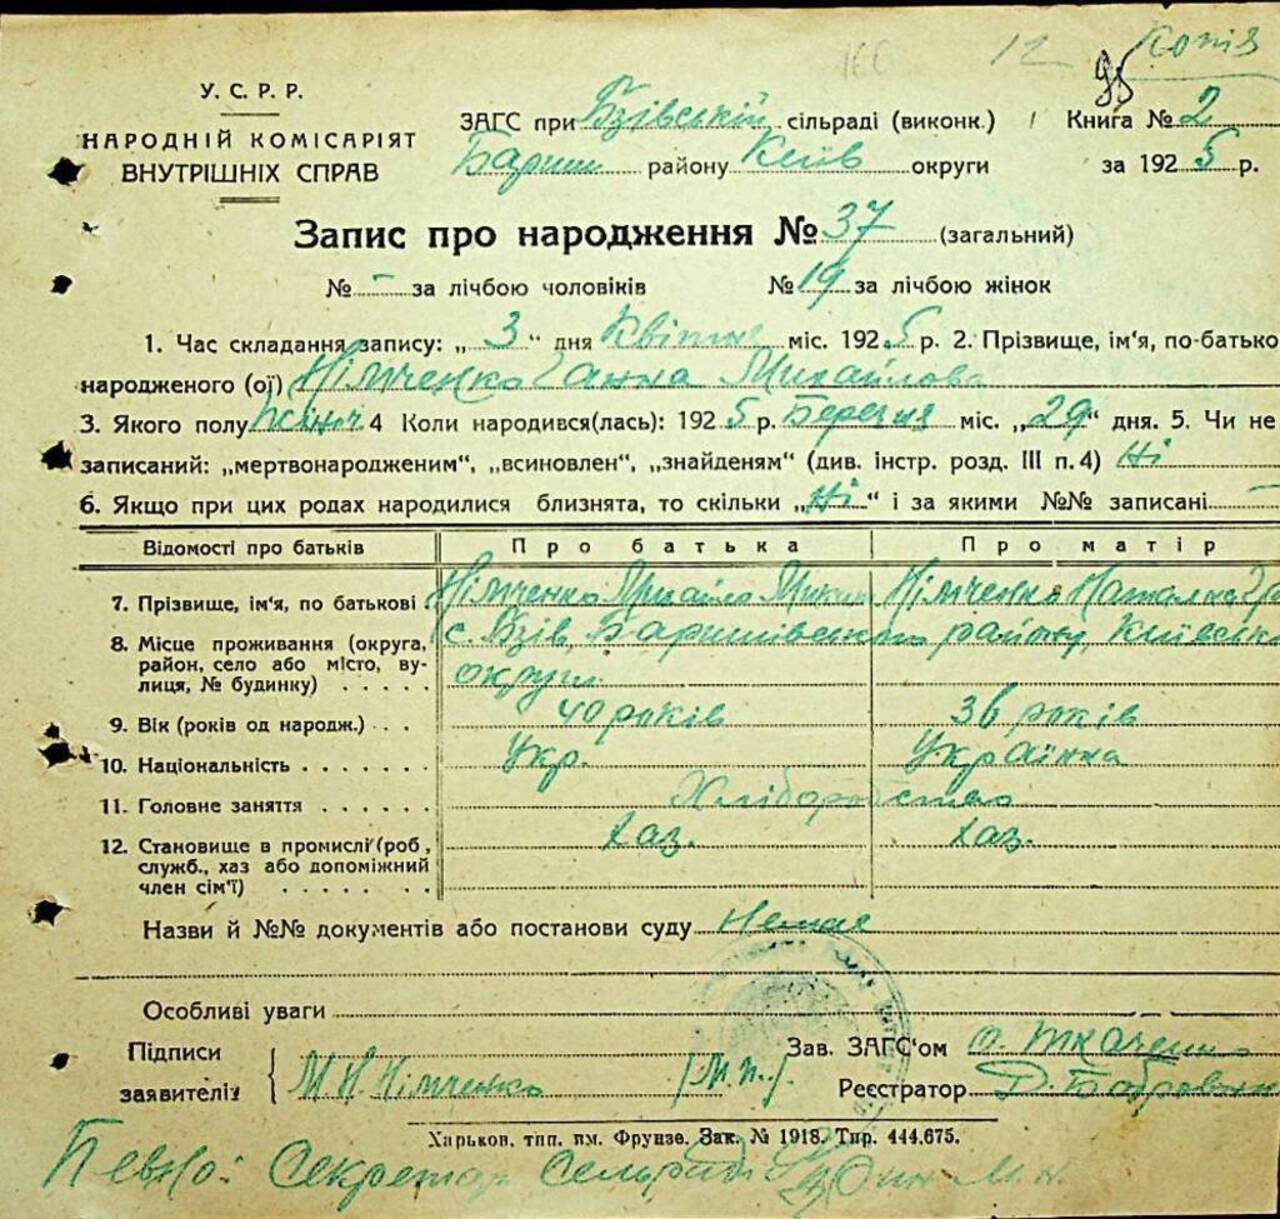 166 12 Копія
95
У. С. Р. Р.
НАРОДНІЙ КОМІСАРІЯТ
ВНУТРІШНІХ СПРАВ
ЗАГС при Бзівській сільраді (виконк.) Книга № 2
Бариш районy Київ округи за 1925 р.
Запис про народження № 37 (загальний)
№ - за лічбою чоловіків № 19 за лічбою жінок
1. Час складання запису: „3“ дня Квітня міс. 1925 р. 2. Прізвище, ім'я, по-батько
народженого (ої) Німченко Ганна Михайлова
3. Якого полу жіноч 4 Коли народився(лась): 1925 р. Березня міс. „29“ дня. 5. Чи не
записаний: „мертвонародженим“, „всиновлен“, „знайденям“ (див. інстр. розд. III п. 4) Ні
6. Якщо при цих родах народилися близнята, то скільки „Ні“ і за якими №№ записані -
Відомості про батьків Про батька Про матір
7. Прізвище, ім'я, по батькові Німченко Михайло Німченко Наталка
8. Місце проживання (округа, с. Бзів, Баришівського району, Київсько
район, село або місто, ву-
лиця, № будинку) . . . . . округи
9. Вік (років од народж.) . . . 40 років 36 років
10. Національність . . . . . . . Укр. Українка
11. Головне заняття . . . . . . Хліборобство
12. Становище в промислі (роб, хаз. хаз.
служб., хаз або допоміжний
член сім'ї) . . . . . . . .
Назви й №№ документів або постанови суду Немає
Особливі уваги
Підписи Зав. ЗАГС'ом О. Ткаченко
заявителів М. Н. Німченко /М. П./ Реєстратор Д. Бобровник
Харьков, тип. им. Фрунзе. Зак. № 1918. Тир. 444.675.
Певно: Секретар Сельради М. Н.